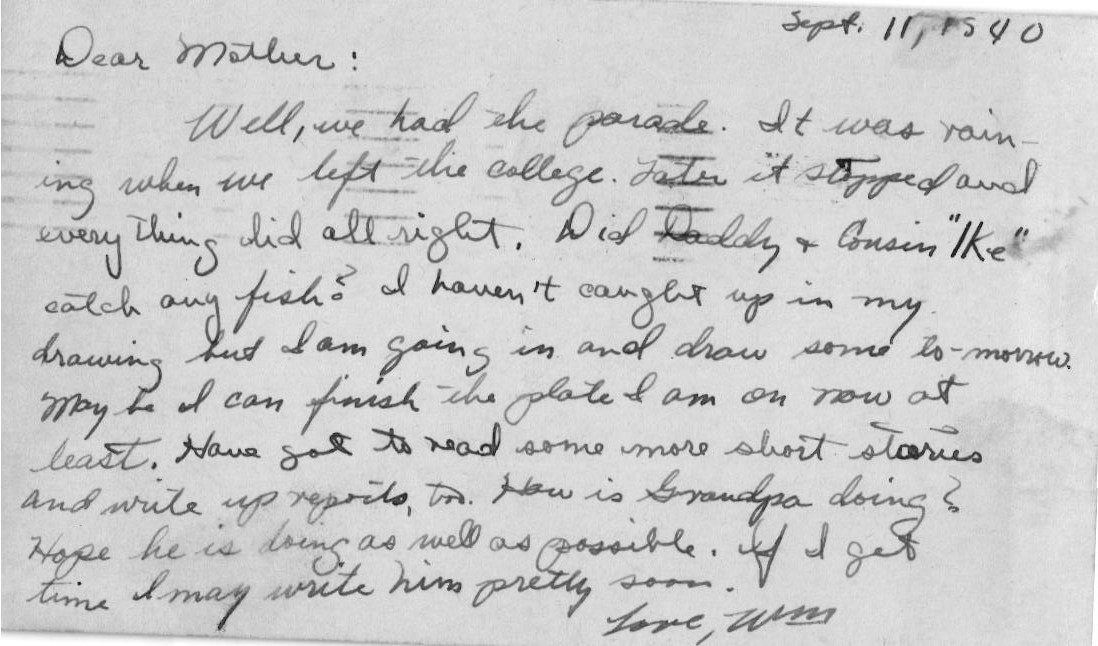 Sept. 11, 1940
Dear Mother:
Well, we had the parade. It was rain-
ing when we left the college. Later it stopped and
everything did all right. Did Daddy + Cousin "Ike"
catch any fish? I haven't caught up in my
drawing but I am going in and draw some to-morrow.
May be I can finish the plate I am on now at
least. Have got to read some more short stories
and write up reports, too. How is Grandpa doing?
Hope he is doing as well as possible. If I get
time I may write him pretty soon.
Love, Wm